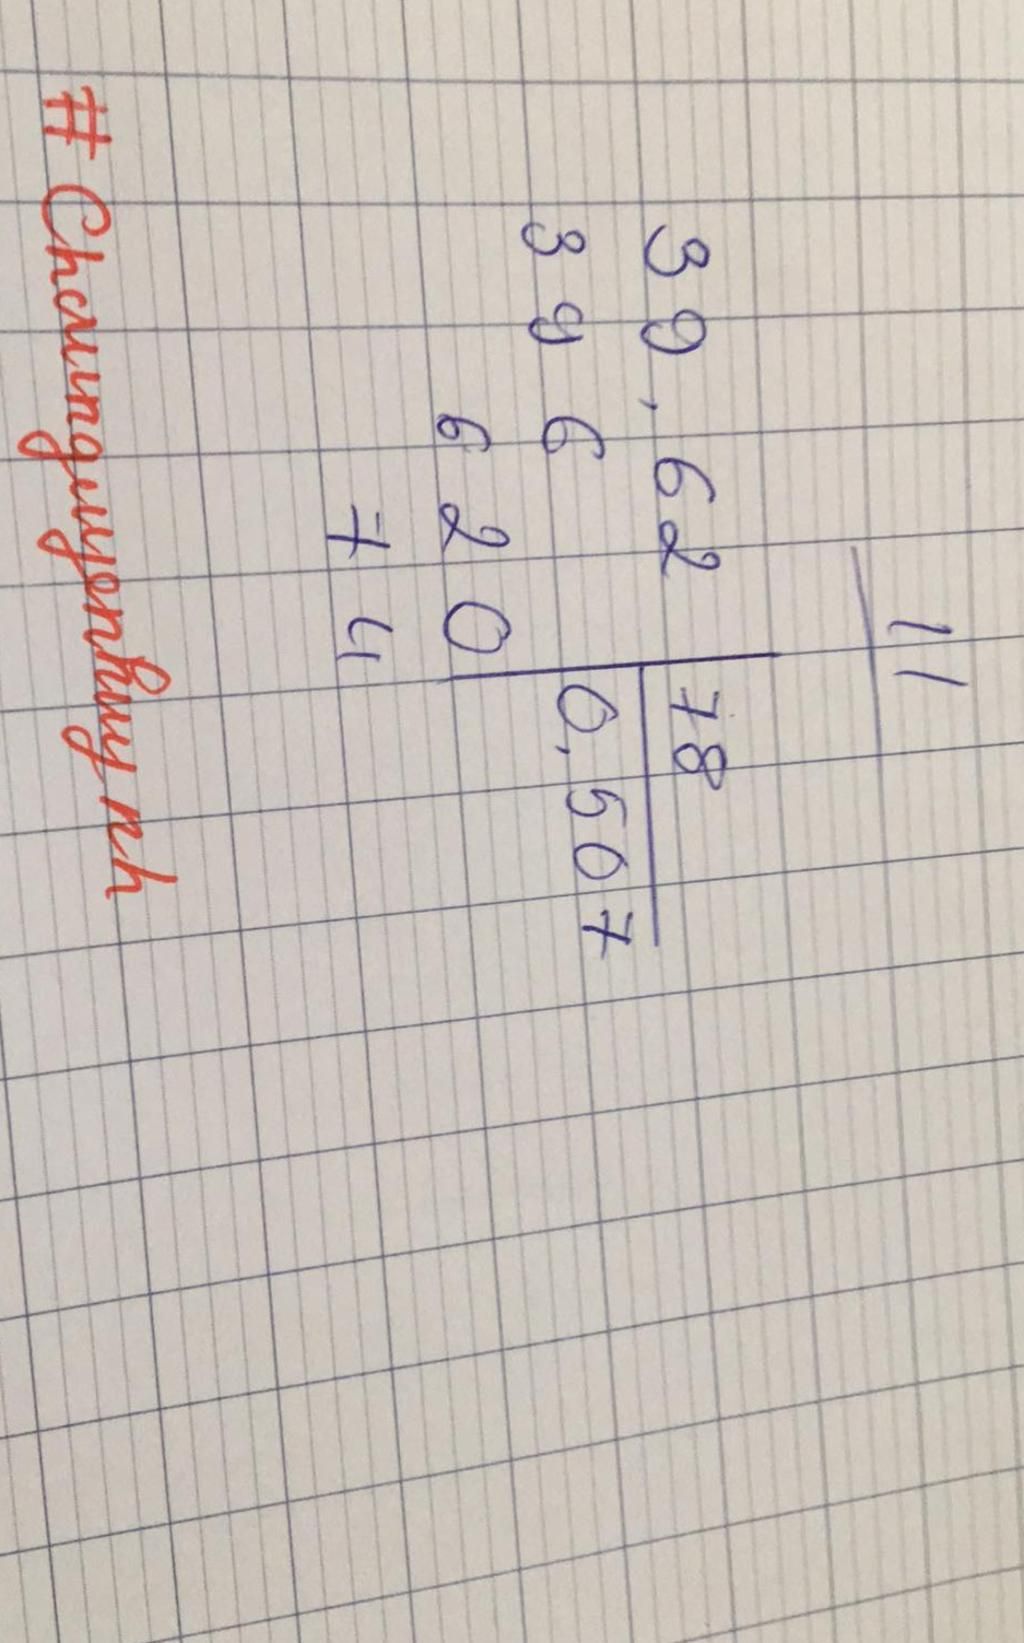 11
39,62 78
396 0,507
620
74
# Chaunguyenhuynh